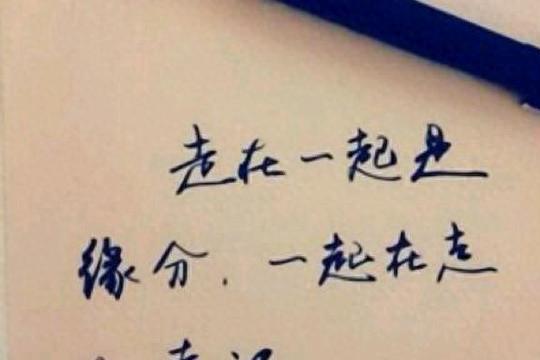 走在一起是
缘分，一起在走